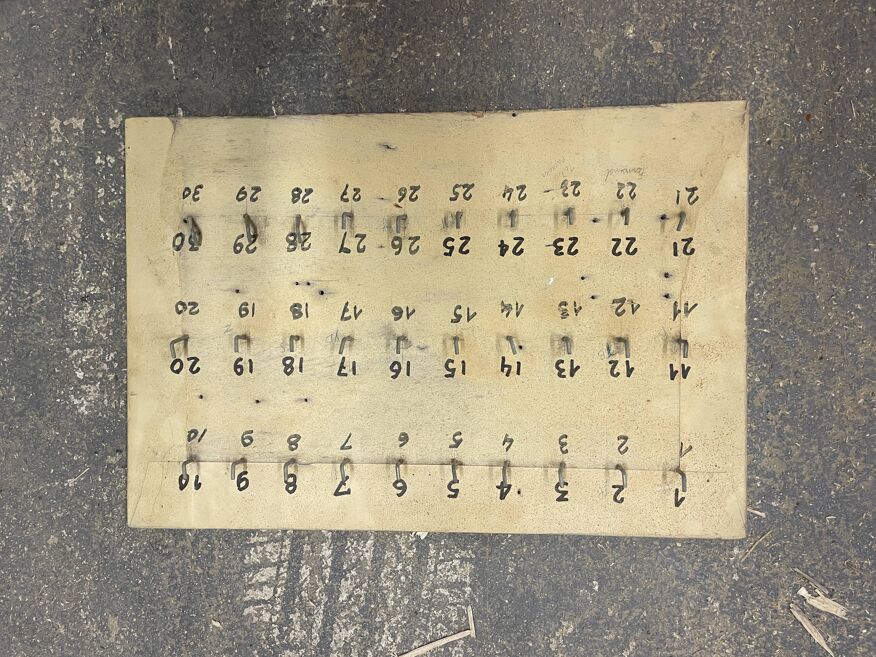 1 2 3 4 5 6 7 8 9 10
1 2 3 4 5 6 7 8 9 10
11 12 13 14 15 16 17 18 19 20
11 12 13 14 15 16 17 18 19 20
21 22 23 24 25 26 27 28 29 30
21 22 23 24 25 26 27 28 29 30